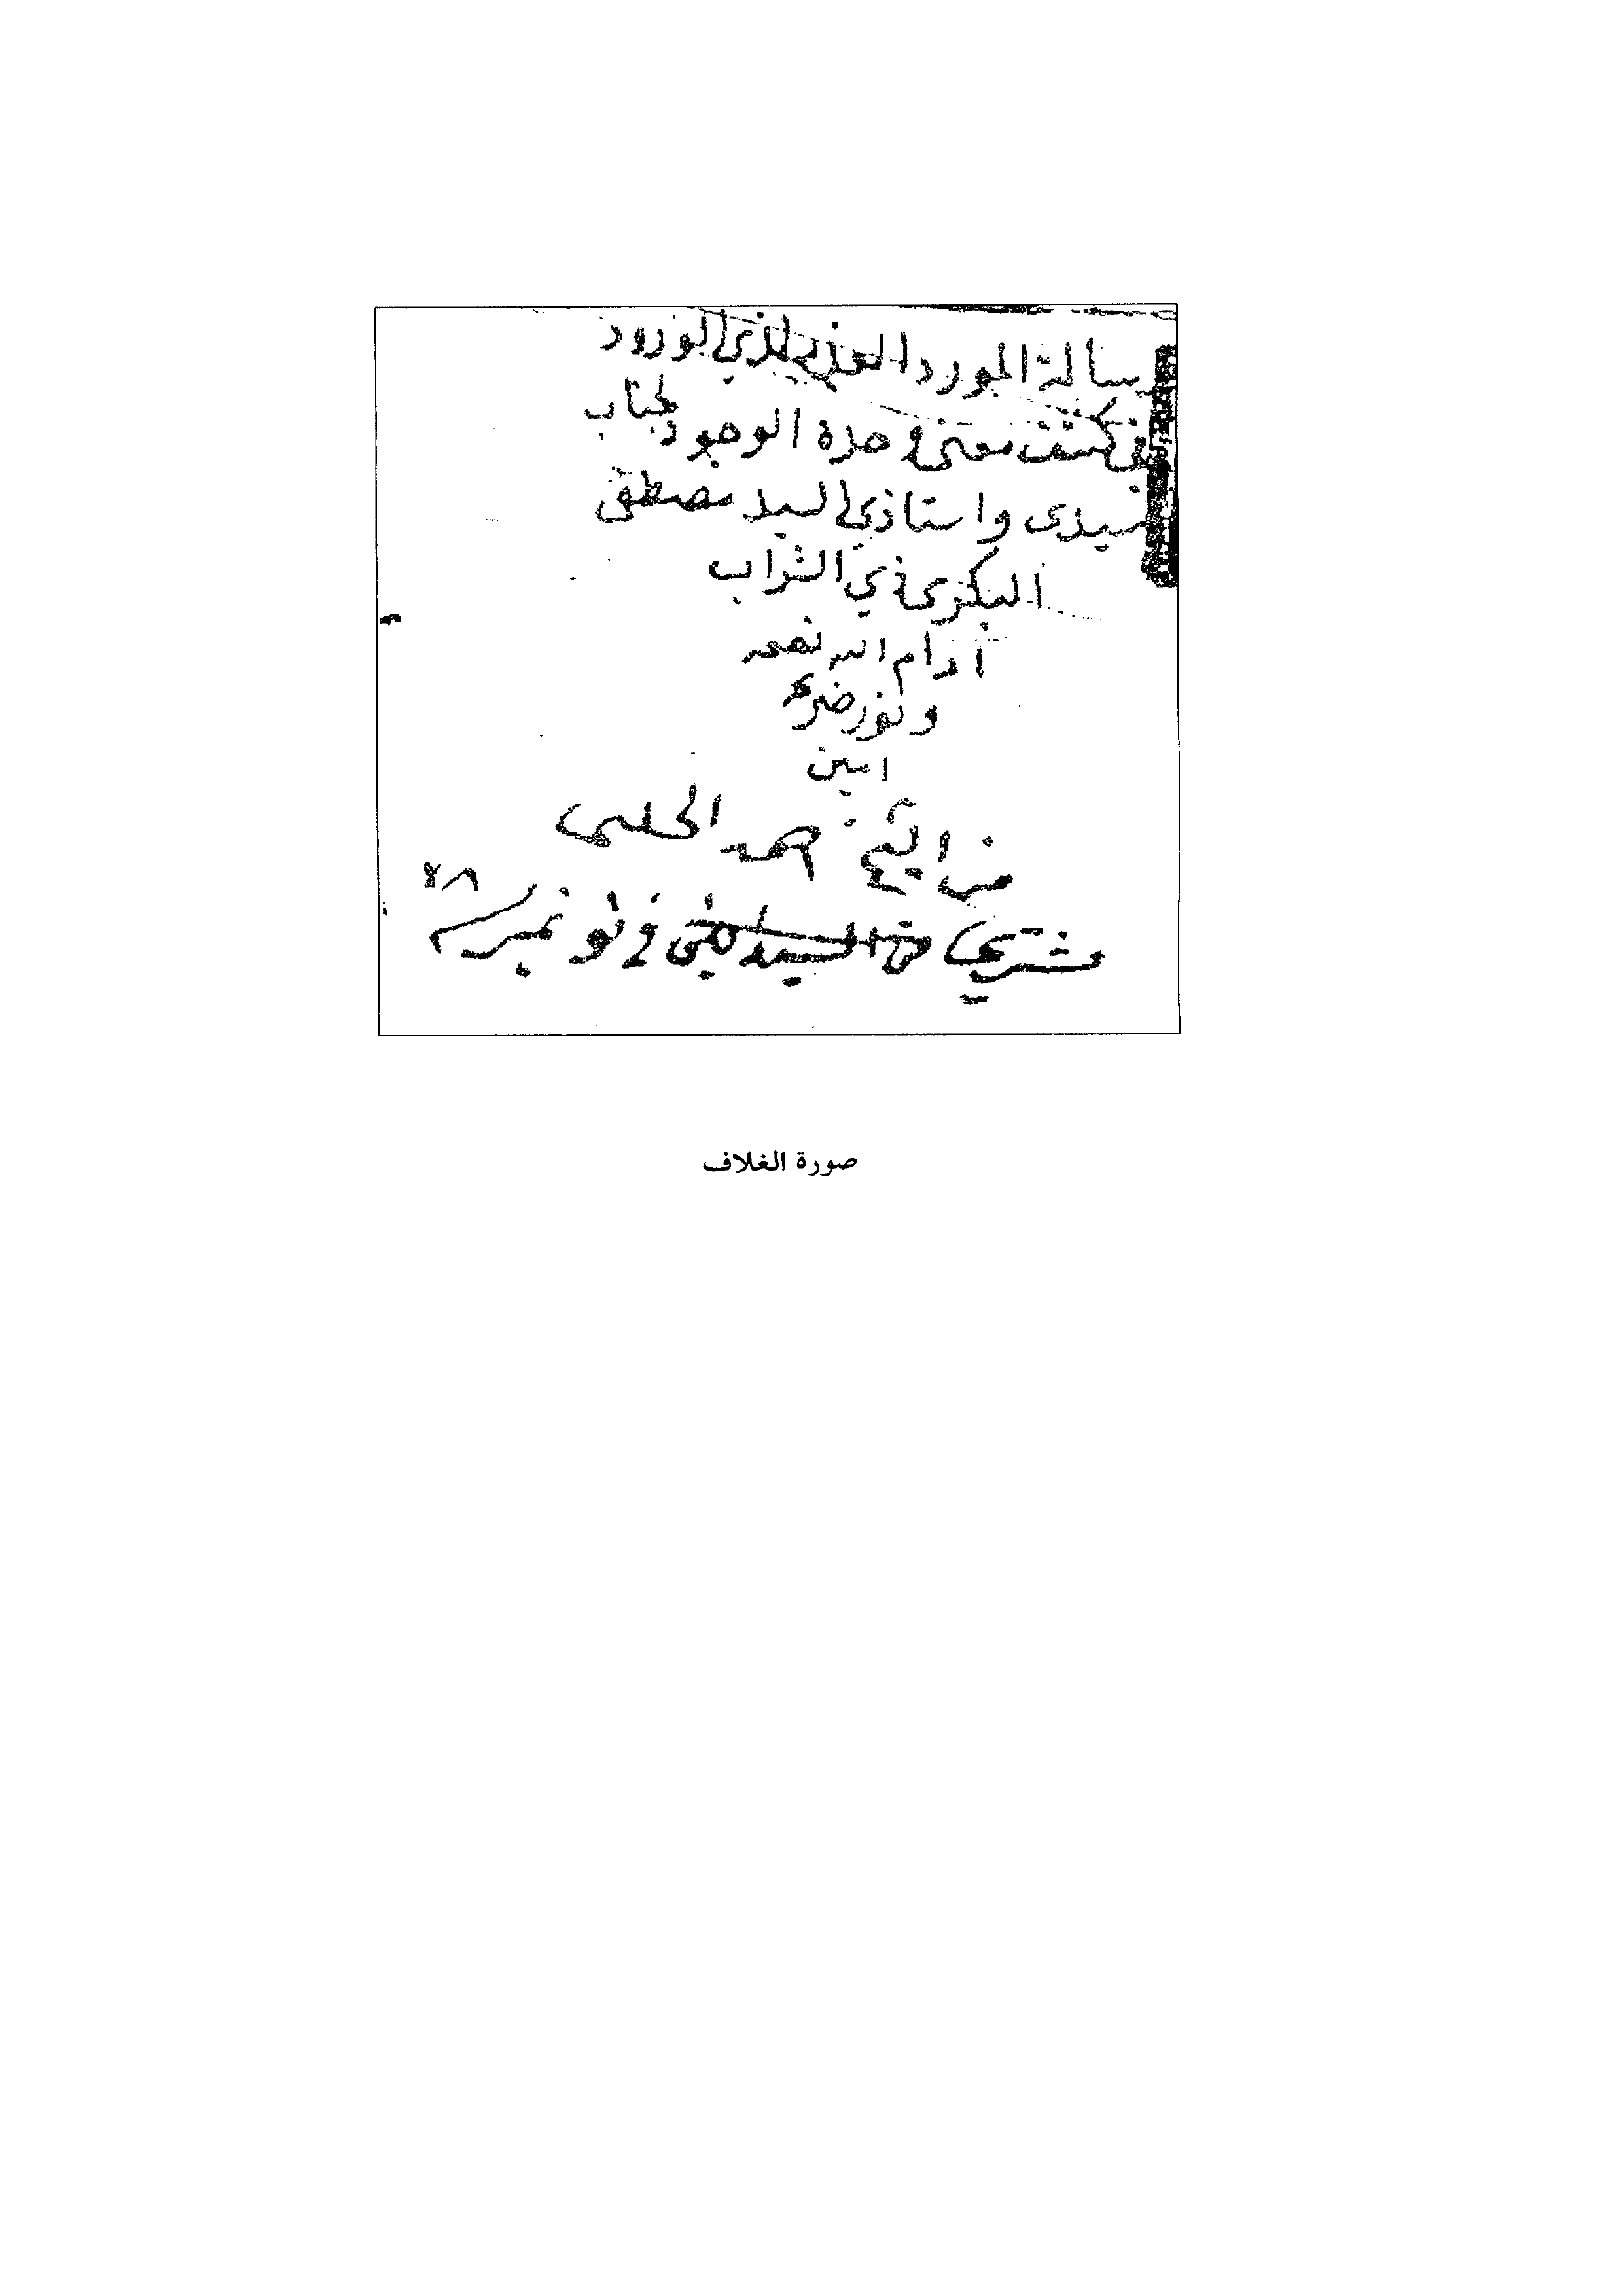 رسالة المورد العذب لذي الورود
في كشف معنى وحدة الوجود لجناب
سيدى واستاذي السيد مصطفى
البكرى ذي الشراب
ادام الله نفعه
ونور ضريحه
امين
من الشيخ احمد الحلبي
مشترى من السيد في نونمبر ٢٨
صورة الغلاف